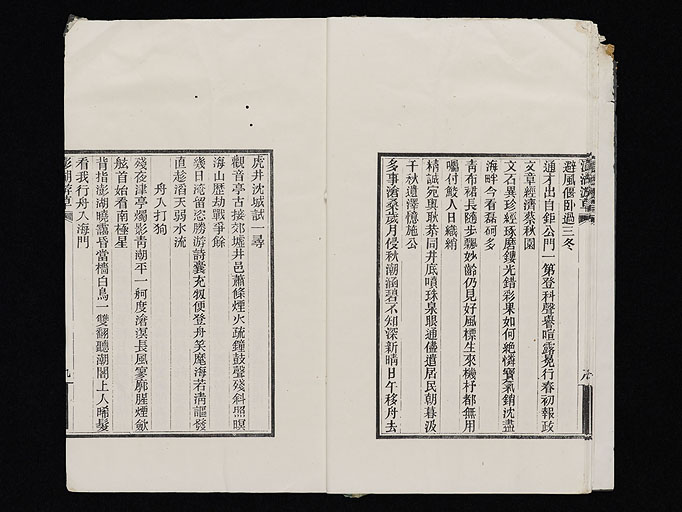 避風偃卧過三冬
通才出自鉅公門一第登科聲譽喧露冕行春初報政
文章經濟蔡秋園
文石異珍經琢磨鏤光錯彩果如何絶憐寶氣銷沈盡
海畔今看磊砢多
青布裙長随步飄妙齡仍見好風標生來機杼都無用
囑付鮫人日織綃
精誠宛與耿恭同井底噴珠泉眼通儘遣居民朝暮汲
千秋遺澤憶施公
多事滄桑歲月侵秋潮涵碧不知深新晴日午移舟去
虎井沈城試一尋
觀音亭古接郊墟井邑蕭條煙火疏鐘鼓聲殘斜照暝
海山歷劫戰爭餘
幾日淹留恣勝游詩囊充牣便登舟笑麾海若淸謳發
直趁滔天弱水流
舟入打狗
殘夜津亭燭影靑潮平一舸度滄溟長風寥廓腥煙斂
舷首始看南極星
背指澎湖曉靄昏當檣白鳥一雙翻聽潮閣上人晞髮
看我行舟入海門
澎湖游草